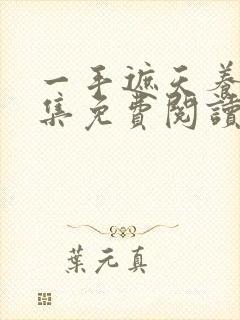 一手遮天養
集免費閱讀
葉元真